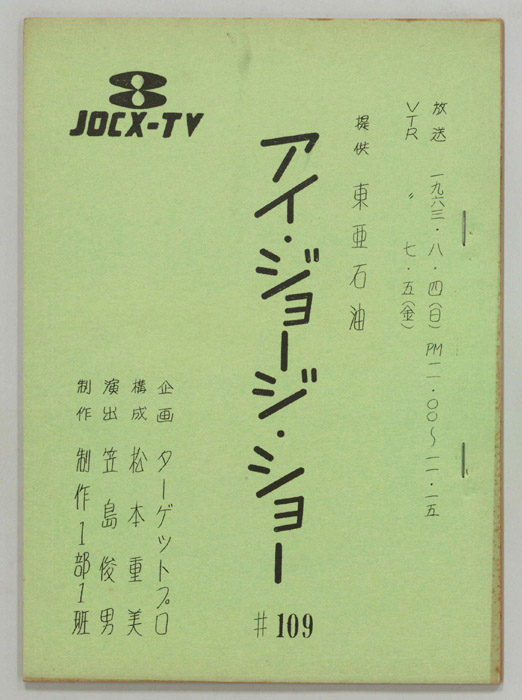 JOCX-TV
放送 一九六三・八・四(日) PM 一一・〇〇〜一一・一五
VTR 〃 七・五(金)
提供 東亜石油
アイ・ジョージ・ショー
#109
企画 ターゲットプロ
構成 松本重美
演出 笠島俊男
制作 制作1部1班